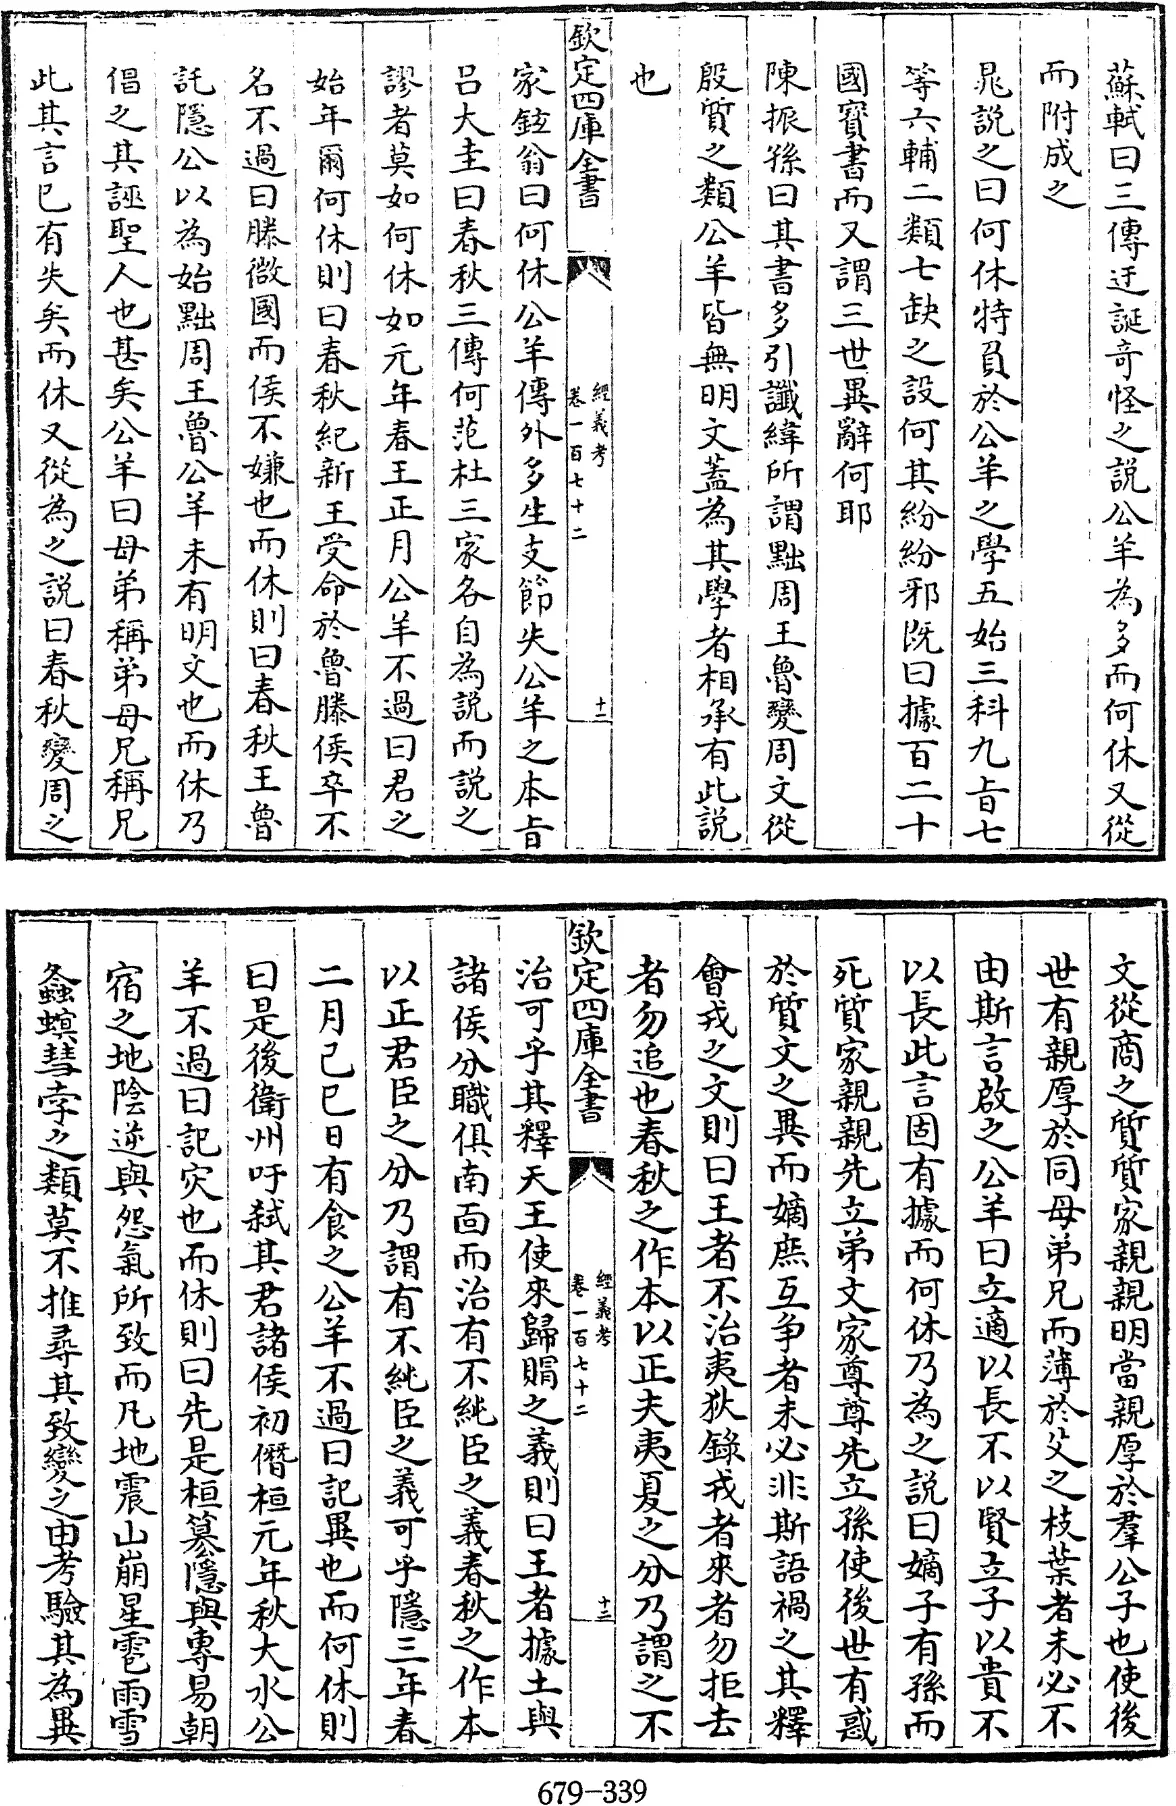 蘇軾曰三傳迂誕竒怪之説公羊為多而何休又從
而附成之
晁説之曰何休特負於公羊之學五始三科九㫖七
等六輔二類七缺之設何其紛紛邪既曰據百二十
國寳書而又謂三世異辭何耶
陳振孫曰其書多引讖緯所謂黜周王魯變周文從
殷質之類公羊皆無明文蓋為其學者相承有此説
也
欽定四庫全書
經義考
卷一百七十二
十二
家鉉翁曰何休公羊傳外多生支節失公羊之本㫖
吕大圭曰春秋三傳何范杜三家各自為説而説之
謬者莫如何休如元年春王正月公羊不過曰君之
始年爾何休則曰春秋紀新王受命於魯滕侯卒不
名不過曰滕微國而侯不嫌也而休則曰春秋王魯
託隱公以為始黜周王魯公羊未有明文也而休乃
倡之其誣聖人也甚矣公羊曰母弟稱弟母兄稱兄
此其言已有失矣而休又從為之説曰春秋變周之
文從商之質質家親親明當親厚於羣公子也使後
世有親厚於同母弟兄而薄於父之枝葉者未必不
由斯言啟之公羊曰立適以長不以賢立子以貴不
以長此言固有據而何休乃為之説曰嫡子有孫而
死質家親親先立弟文家尊尊先立孫使後世有惑
於質文之異而嫡庶互争者未必非斯語禍之其釋
會戎之文則曰王者不治夷狄錄戎者來者勿拒去
者勿追也春秋之作本以正夫夷夏之分乃謂之不
欽定四庫全書
經義考
卷一百七十二
十三
治可乎其釋天王使來歸賵之義則曰王者據土與
諸侯分職俱南面而治有不純臣之義春秋之作本
以正君臣之分乃謂有不純臣之義可乎隱三年春
二月己巳日有食之公羊不過曰記異也而何休則
曰是後衛州吁弑其君諸侯初僭桓元年秋大水公
羊不過曰記災也而休則曰先是桓簒隱與專易朝
宿之地陰逆與怨氣所致而凡地震山崩星雹雨雪
螽螟彗孛之類莫不推尋其致變之由考驗其為異
679-339